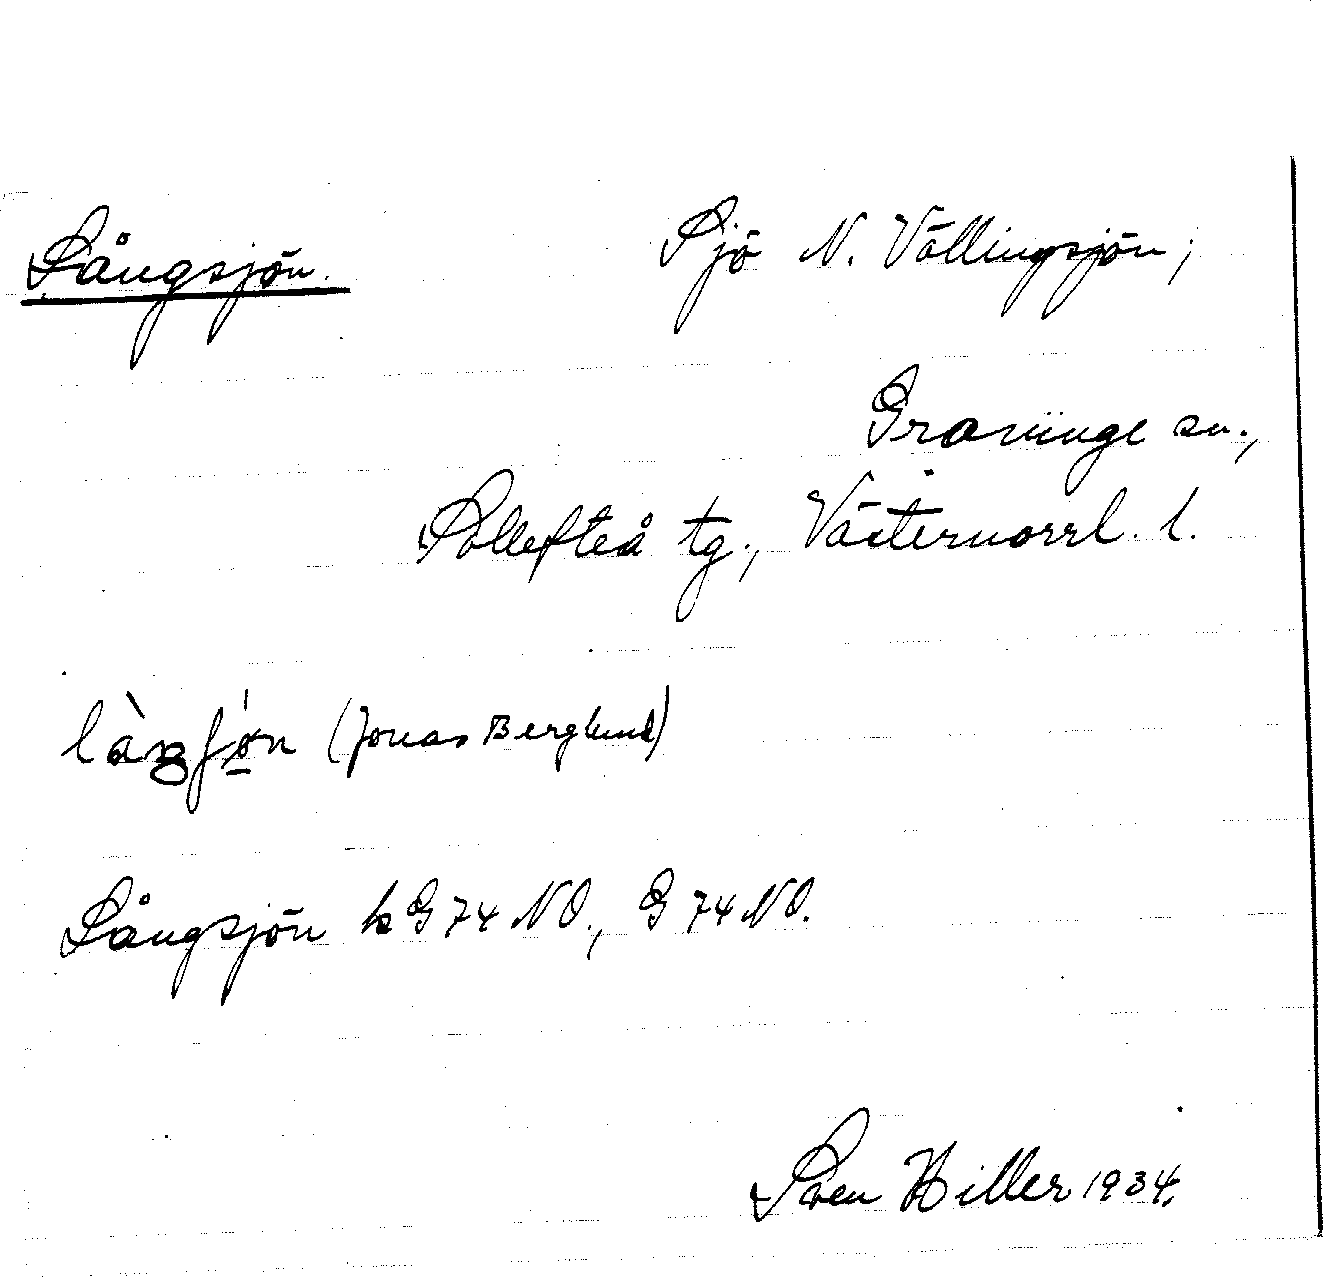 Långsjön.
Sjö N. Vällingsjön,
Graninge sn.,
Sollefteå tg., Västernorrl. l.
(Jonas Berglund)
Långsjön k G 74 NO., G 74 NO.
Sven Hiller 1934.